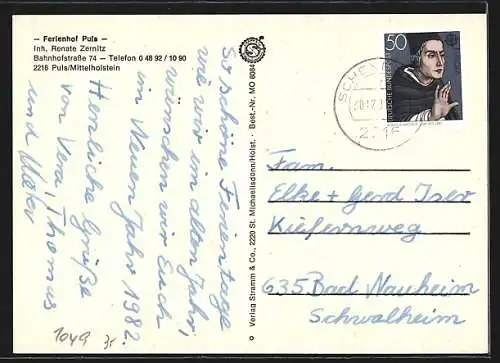 – Ferienhof Puls –
Inh. Renate Zernitz
Bahnhofstraße 74 – Telefon 0 48 92 / 10 90
2216 Puls/Mittelholstein
So schöne Ferientage
wie wir im alten Jahr,
wünschen wir Euch
im Neuen Jahr 1982.
Herzliche Grüße
von Vera, Thomas
und
1049
Verlag Stramm & Co., 2220 St. Michaelisdonn/Holst. · Best.-Nr. MO 8084
50
DEUTSCHE BUNDESPOST
SCHE
2216
Fam.
Elke + Gerd
Kiefernweg
635 Bad Nauheim
Schwalheim